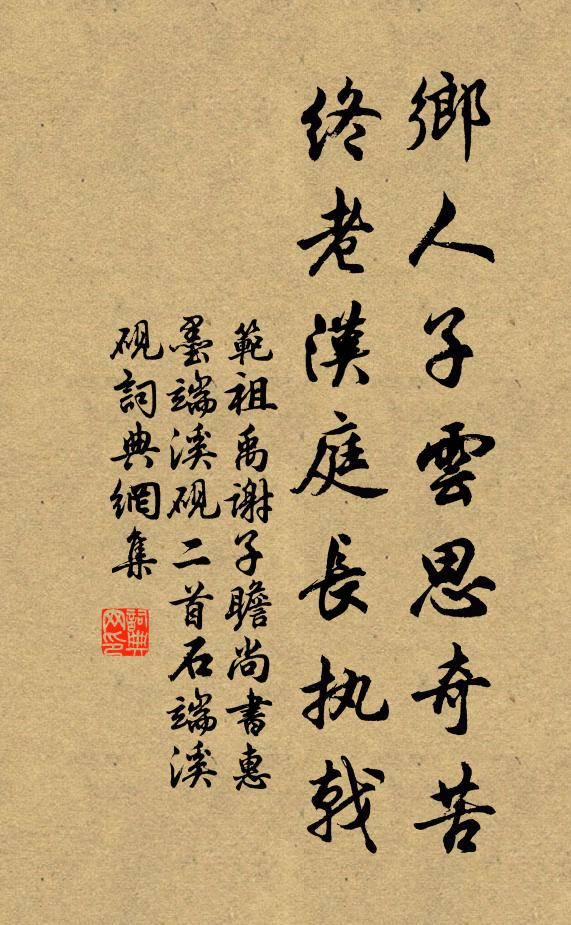 鄉人子雲思奇苦
終老漢庭長执戟
範祖禹謝子瞻尚書惠
墨端溪硯二首石端溪
硯詞典網集
詞典
网印